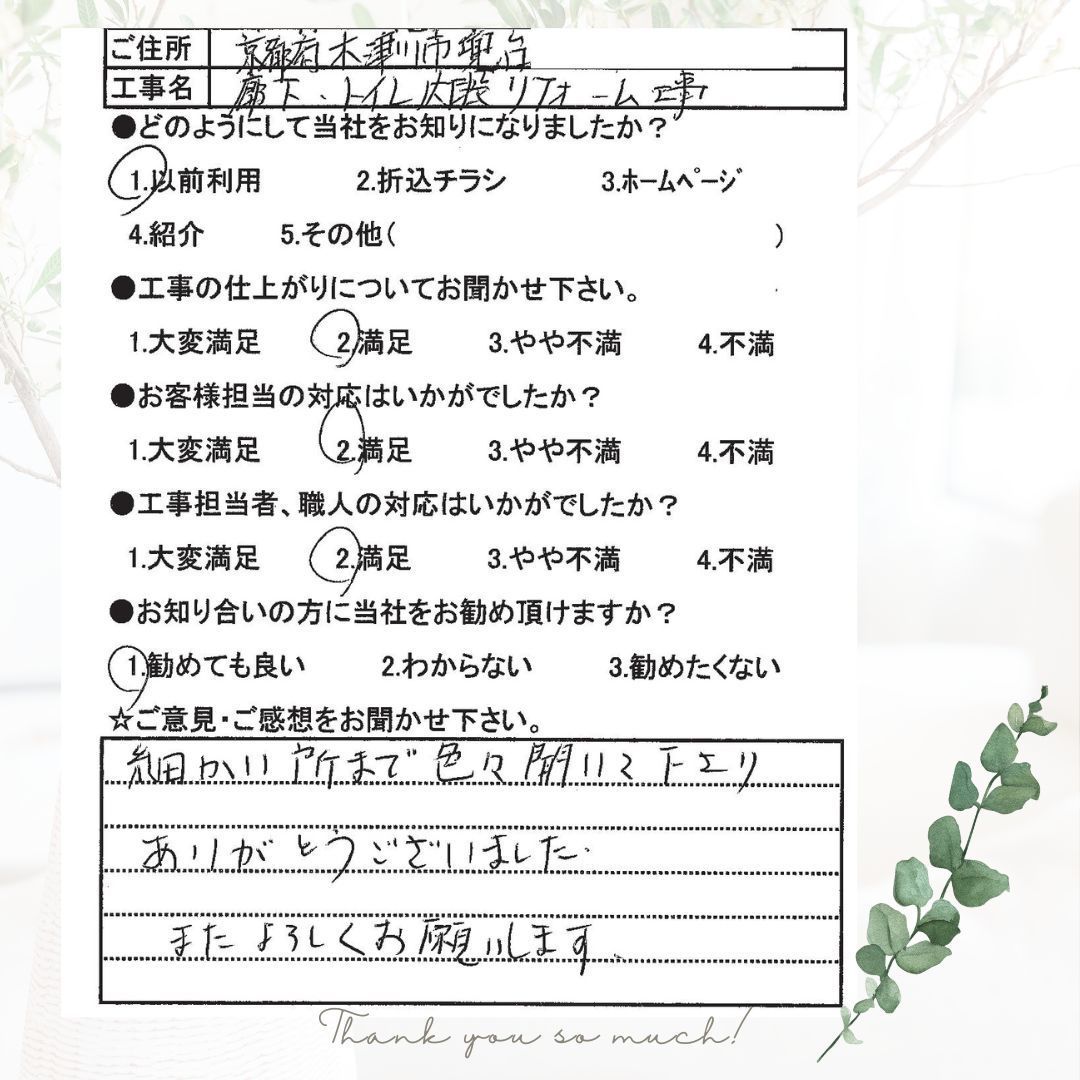 ご住所 京都府木津川市兜台
工事名 廊下・トイレ内装リフォーム工事
●どのようにして当社をお知りになりましたか？
1.以前利用 2.折込チラシ 3.ﾎｰﾑﾍﾟｰｼﾞ
4.紹介 5.その他( )
●工事の仕上がりについてお聞かせ下さい。
1.大変満足 2.満足 3.やや不満 4.不満
●お客様担当の対応はいかがでしたか？
1.大変満足 2.満足 3.やや不満 4.不満
●工事担当者、職人の対応はいかがでしたか？
1.大変満足 2.満足 3.やや不満 4.不満
●お知り合いの方に当社をお勧め頂けますか？
1.勧めても良い 2.わからない 3.勧めたくない
☆ご意見・ご感想をお聞かせ下さい。
細かい所まで色々聞いて下さり
ありがとうございました.
またよろしくお願いします.
Thank you so much!